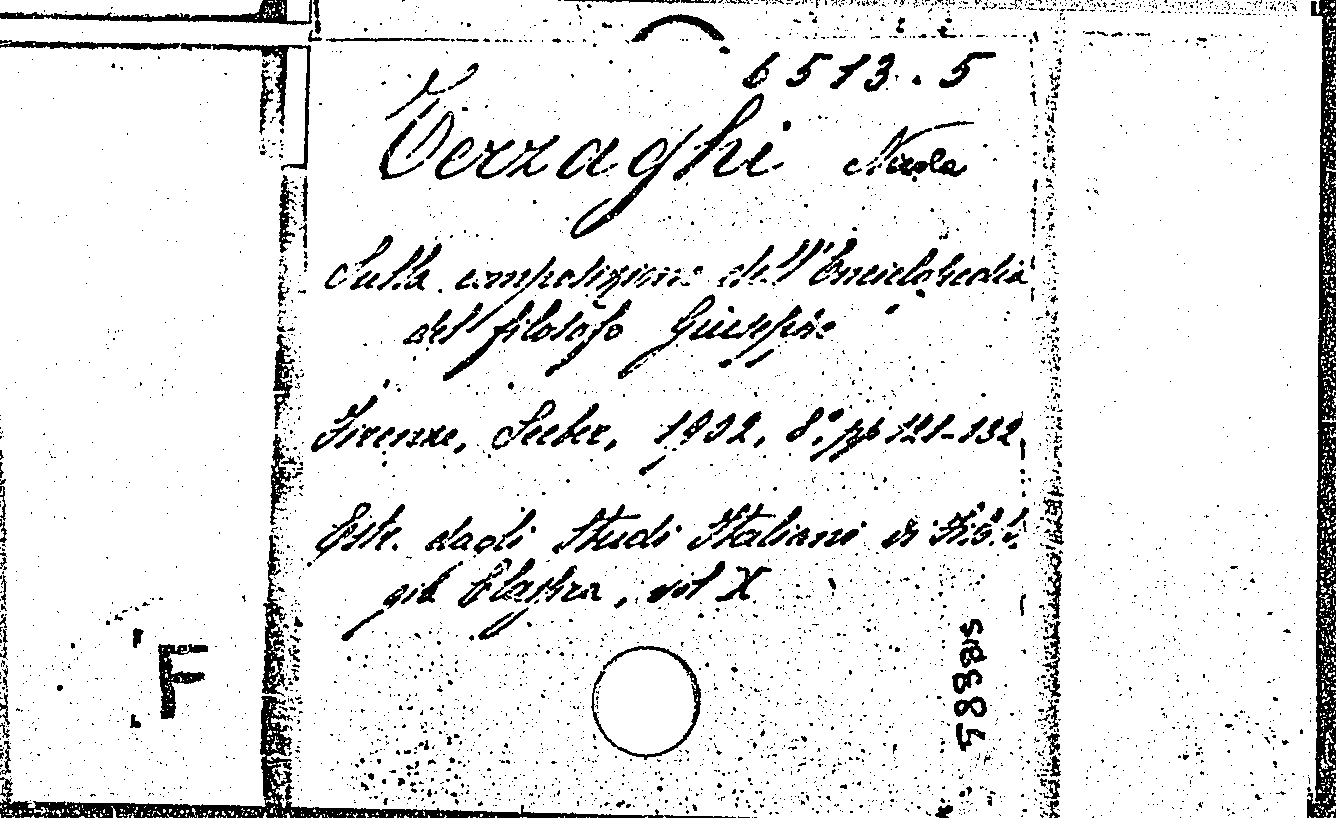 6513.5
Terzaghi Nicola
Sulla composizione dell'Enciclopedia
del filosofo Giuseppe
Firenze, Seeber, 1902, 8°, pp 121-132
Estr. dagli Studi Italiani di Fil.
Classica, vol X
F